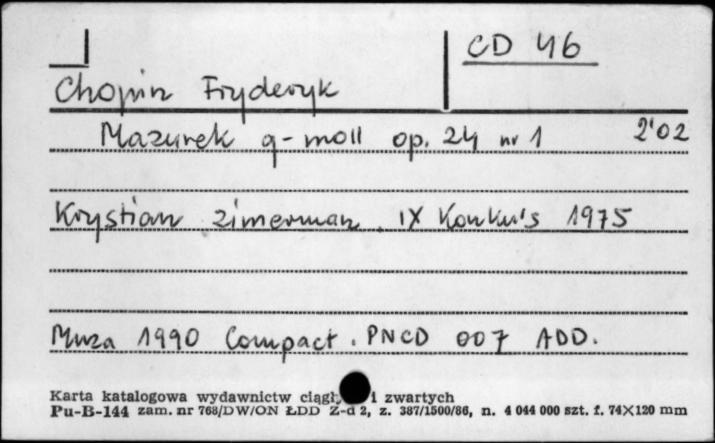 CD 46
Chopin Fryderyk
Mazurek g-moll op. 24 nr 1 2'02
Krystian Zimerman. IX Konkurs 1975
Muza 1990 Compact. PNCD 007 ADD.
Karta katalogowa wydawnictw i zwartych
Pu-B-144 zam. nr 768/DW/ON ŁDD Z-d 2, z. 387/1500/86, n. 4 044 000 szt. f. 74×120 mm